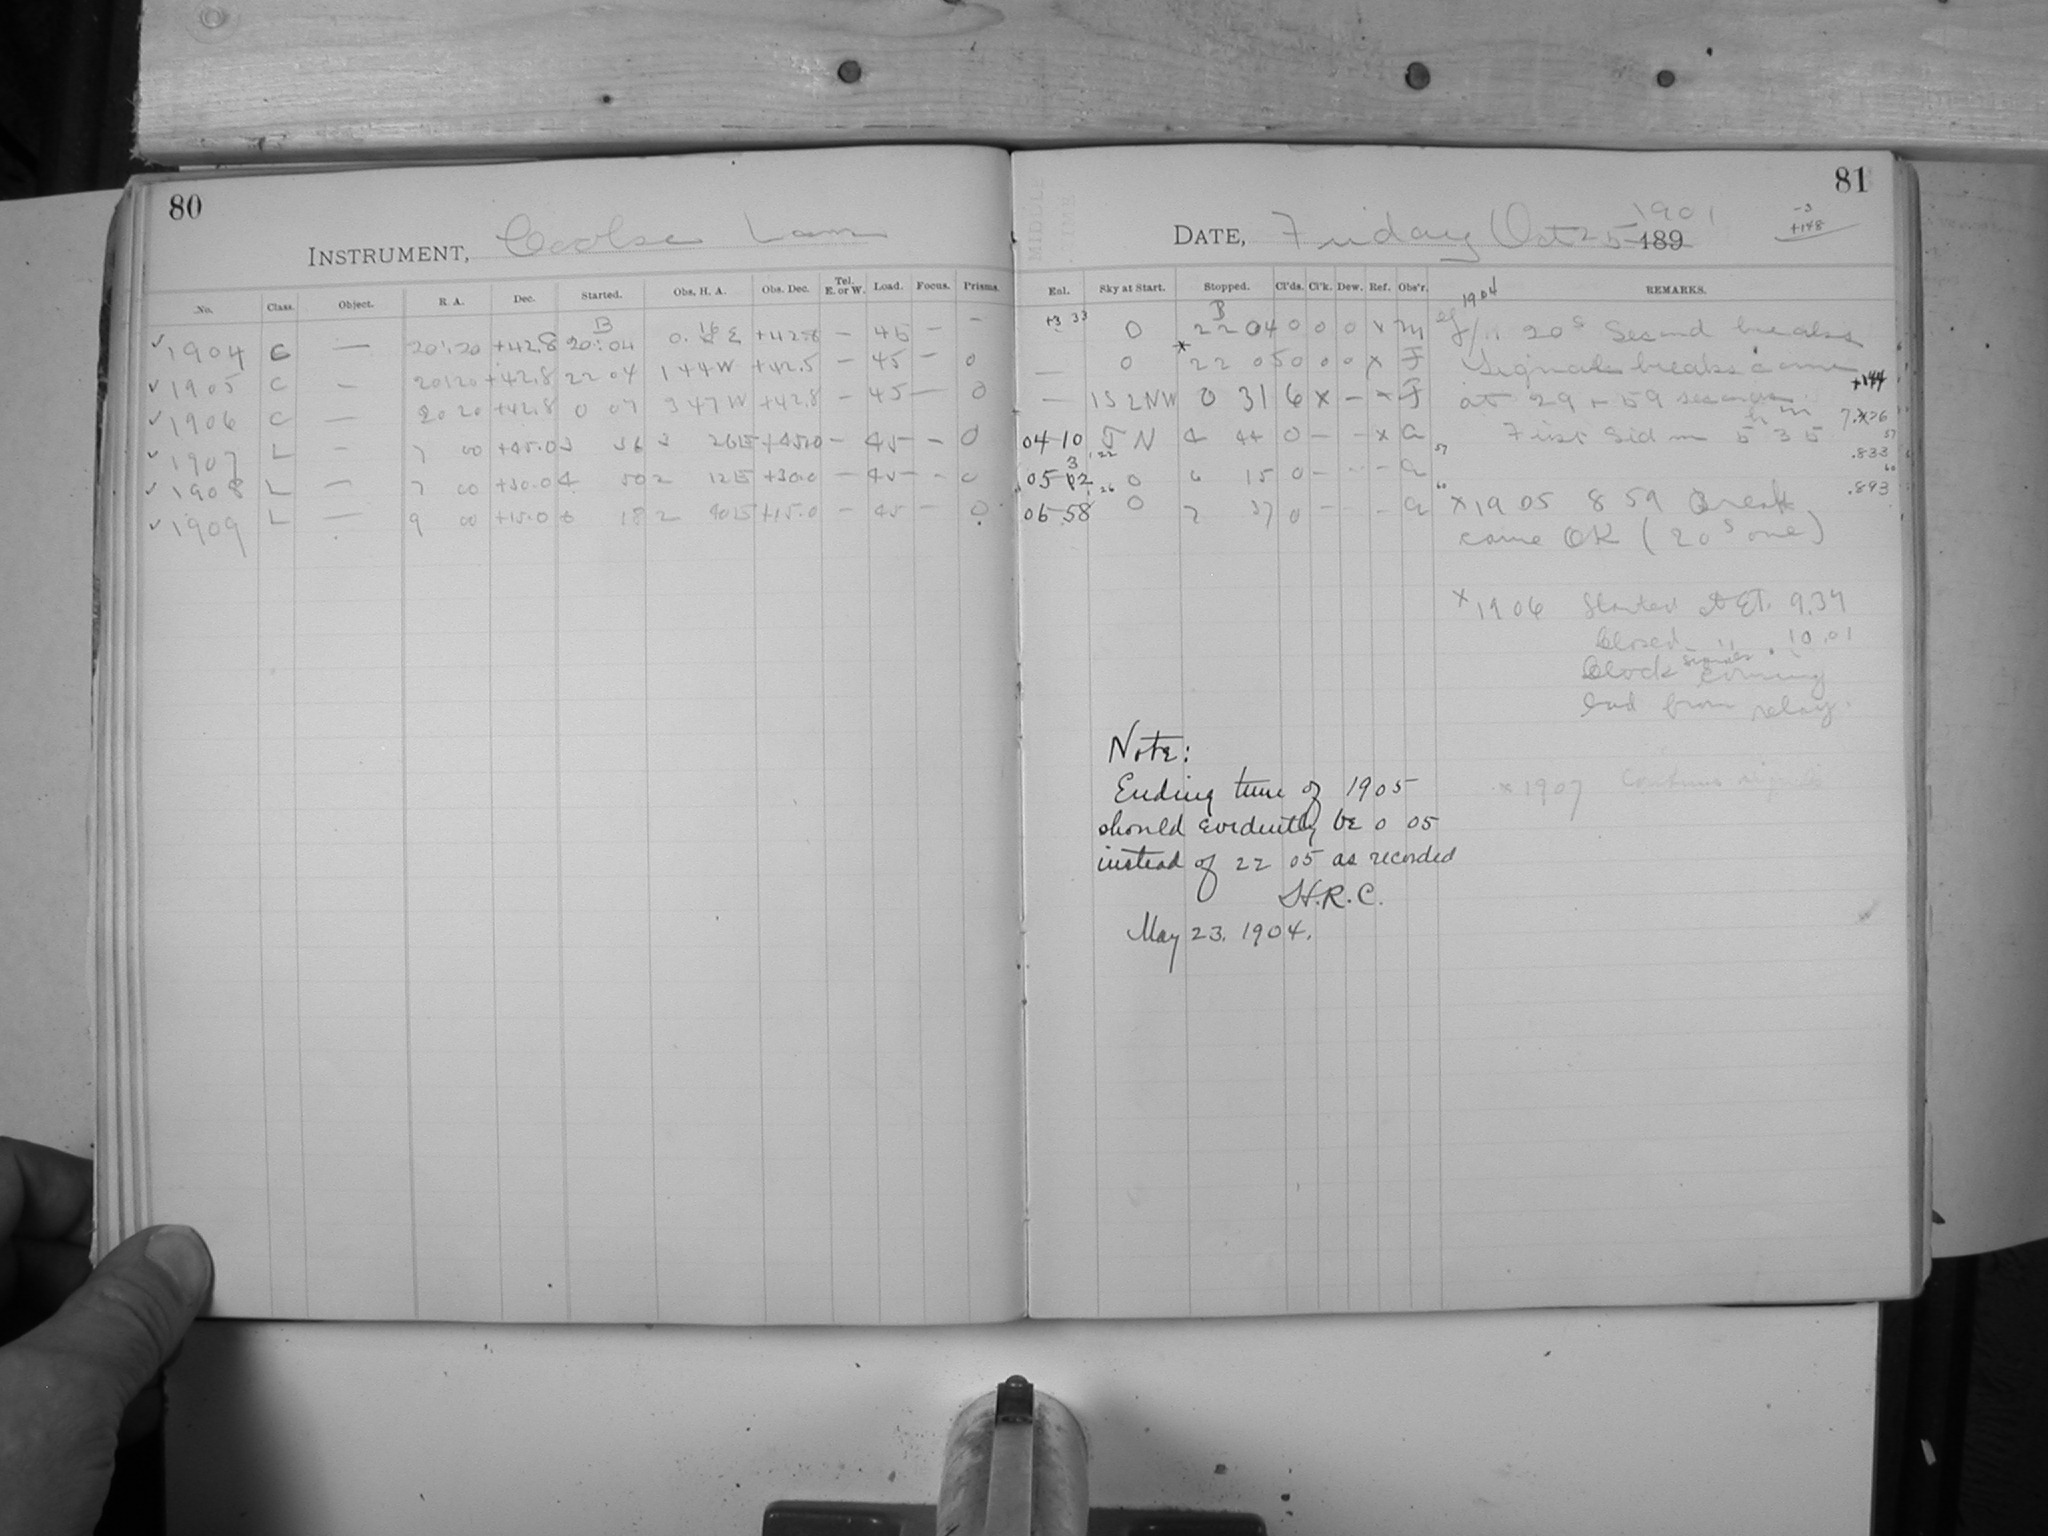 80
INSTRUMENT, Cooke Lens
No. Class. Object. R. A. Dec. Started. Obs. H. A. Obs. Dec. Tel. E. or W. Load. Focus. Prisms.
B
✓ 1904 C — 20 20 +42.8 20:04 +42.8 — 45 — —
✓ 1905 C — 20 20 +42.8 22 04 1 44 W +42.5 — 45 — 0
✓ 1906 C — 20 20 +42.8 0 07 3 47 W +42.8 — 45 — 0
✓ 1907 L — 7 00 +45.0 3 56 3 26 15 +45.0 — 45 — 0
✓ 1908 L — 7 00 +30.0 4 50 2 12 15 +30.0 — 45 — 0
✓ 1909 L — 9 00 +15.0 6 18 2 40 15 +15.0 — 45 — 0
81
DATE, Friday Oct 25 189
1901
-3
+148
Eol. Sky at Start. Stopped. Cl'ds. Cl'k. Dew. Ref. Obs'r. REMARKS.
+3 33 0 22 04 0 0 0 x M
— 0 * 22 05 0 0 0 x F
— 1S 2NW 0 31 6 x — — F
04 10 N 4 44 0 — — x a
05 0 6 15 0 — — — a
06 58 0 7 37 0 — — — a
1904
20s Second breaks
Signals breaks come
at 29 + 59 seconds
First Sid m 5 35
h m
+144
7.26
57
.833
60
.893
x 1905 8 59 Break
came OK (20s one)
x 1906 Started at ET. 9.39
Closed " 10.01
Clock signals coming
bad from relay.
x 1907
Note:
Ending time of 1905
should evidently be 0 05
instead of 22 05 as recorded
H.R.C.
May 23. 1904.